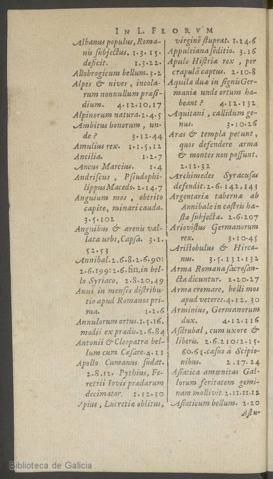 IN L. FLORVM
Albanus populus, Roma-
nis subjectus. 1.3.15.
deficit. 1.3.22.
Allobrogicum bellum. 3.2
Alpes & nives, incola-
rum nonnullum præsi-
dium. 4.12.10,17
Alpinorum natura. 2.4.5
Ambitus honorum, un-
de? 3.12.44
Amulius rex. 1.1.5,12
Ancilia. 1.2.7
Ancus Marcius. 1.4
Andriscus, Pseudophi-
lippus Macedo. 2.14.7
Anguium mos, obtrito
capite, minari cauda.
3.5.102
Anguibus & arenis val-
lata urbs, Capsa. 3.1.
52.53
Annibal. 2.6.8. 2.6.90:
2.6.199: 2.6. fin, in bel-
lo Syriaco. 2.8.20,49
Anni in menses distribu-
tio apud Romanos pri-
ma. 1.2.6
Annulorum ortus. 1.5.16.
modii ex prædis. 2.6.84
Antonii & Cleopatra bel-
lum cum Cæsare. 4.11
Apollo Cumanus sudat.
2.8.12. Pythius, Fe-
retrii Jovis prædarum
decimator. 1.12.50
Apius, Lucretia oblitus,
virginē stuprat. 1.24.6
Appuleiana seditio. 3.16
Apulo Histriæ rex, per
crapulā captus. 2.10.8
Aquila duæ in signis Ger-
mania unde ortum ha-
beant? 4.12.132
Aquitani, callidum ge-
nus. 3.10.26
Aras & templa petunt,
quos defendere arma
& montes non possunt.
2.12.32
Archimedes Syracusas
defendit. 2.6.142,143
Argentaria taberna ab
Annibale in castris ha-
sta subjecta. 2.6.207
Ariovistus Germanorum
rex. 3.10.45
Aristobulus & Hirca-
nus. 3.5.131,132
Arma Romana sacrosan-
cta dicuntur. 2.20.27
Arma cremare, belli mos
apud veteres. 4.12.30
Arminius, Germanorum
dux. 4.12.116
Asdrubal, cum uxore &
liberis. 2.6.210: 2.15.
60.65. cæsus à Scipio-
nibus. 2.17.24
Asiatica amœnitas Gal-
lorum feritatem gemi-
nam mollivit. 2.11.11.12
Asiaticum bellum. 2.20
Biblioteca de Galicia